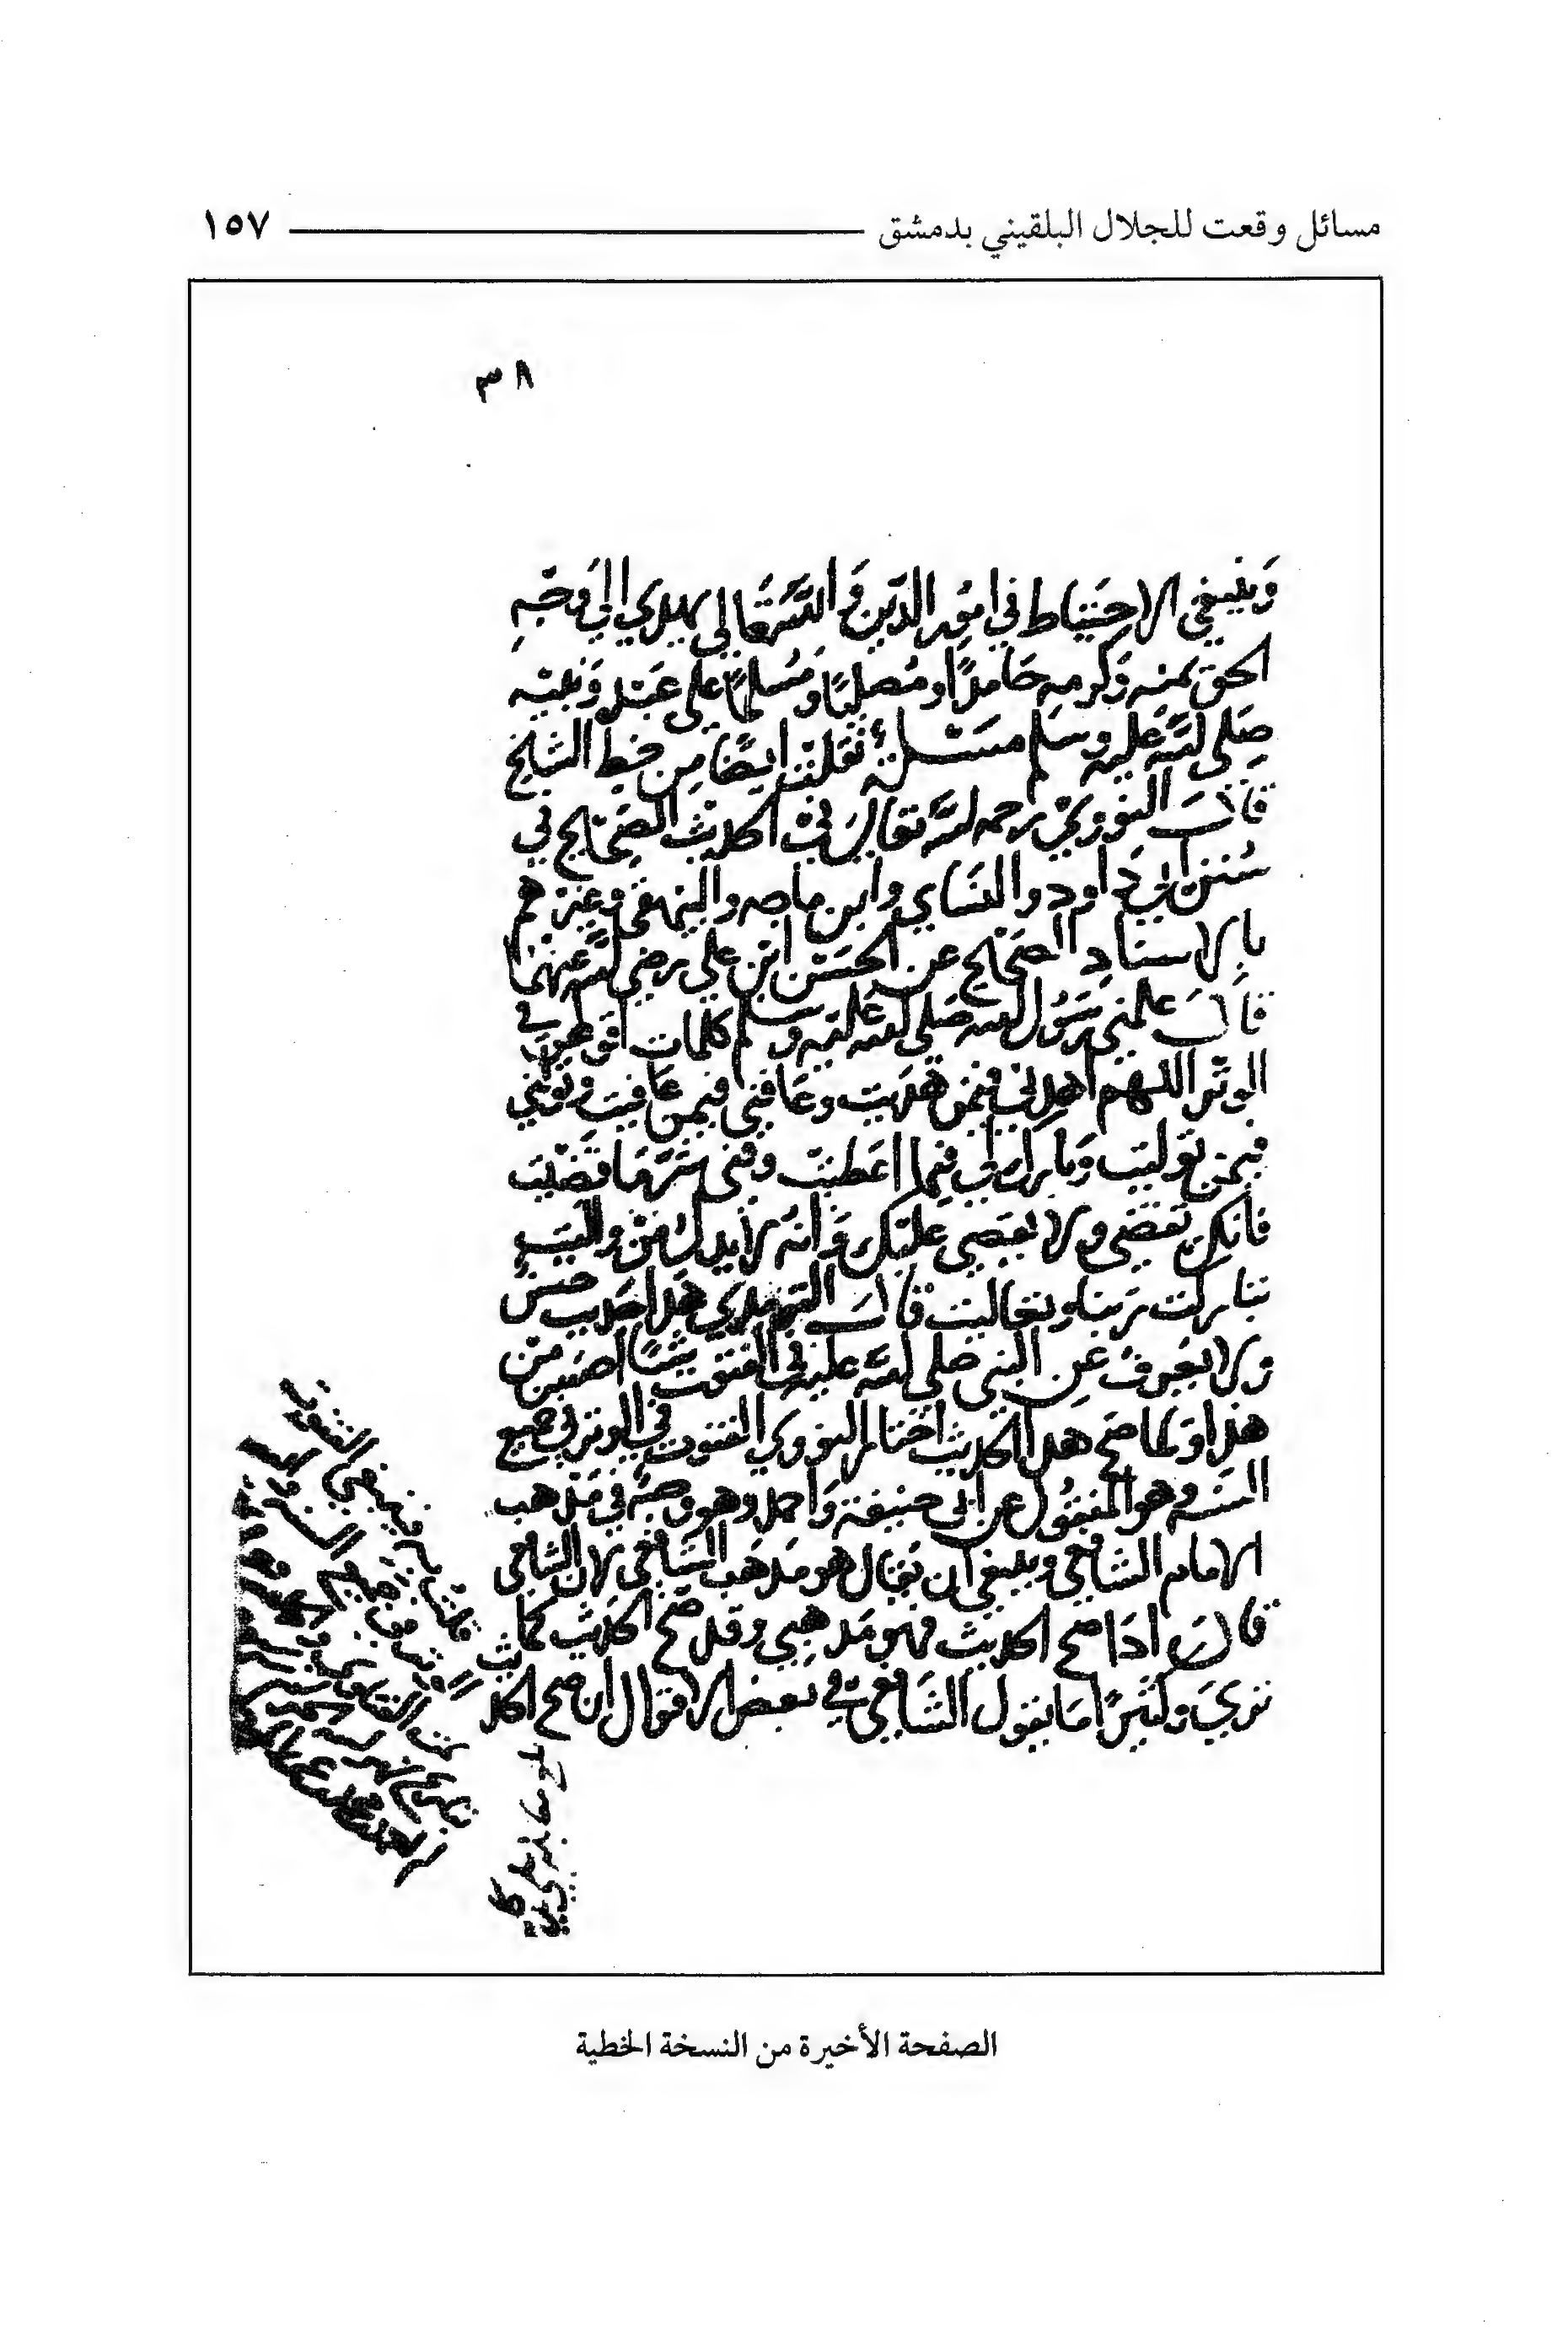 مسائل وقعت للجلال البلقيني بدمشق ١٥٧
٣٨
وينبغي الاحتياط في امور الدين والله تعالى يهدي الى وجه
الحق بمنه وكرمه حامدًا ومصليًا ومسلمًا على عبده ونبيه
صلى الله عليه وسلم مسئلة نقلت ايضًا من خط الشيخ
قال النووي رحمه الله تعالى في الحديث الصحيح في
سنن ابي داود والنساي وابن ماجه والبيهقي وغيرهم
بالاسناد الصحيح عن الحسن ابن علي رضي الله عنهما
قال علمني رسول الله صلى الله عليه وسلم كلمات اقولهن في
الوتر اللهم اهدني فيمن هديت وعافني فيمن عافيت وتولني
فيمن توليت وبارك لي فيما اعطيت وقني شر ما قضيت
فانك تقضي ولا يقضى عليك وانه لا يذل من واليت
تباركت ربنا وتعاليت قال الترمذي هذا حديث حسن
ولا يعرف عن النبي صلى الله عليه في القنوت شيئًا احسن من
هذا ولما صح هذا الحديث اختار النووي القنوت في الوتر في جميع
السنه وهو المنقول عن ابي حنيفة واحمد وهو وجه في مذهب
الامام الشافعي وينبغي ان يقال هو مذهب الشافعي لان الشافعي
قال اذا صح الحديث فهو مذهبي وقد صح الحديث كما
تري وكثيرًا ما يقول الشافعي في بعض الاقوال ان صح الحديث
بلغ مقابلة على
الصفحة الأخيرة من النسخة الخطية